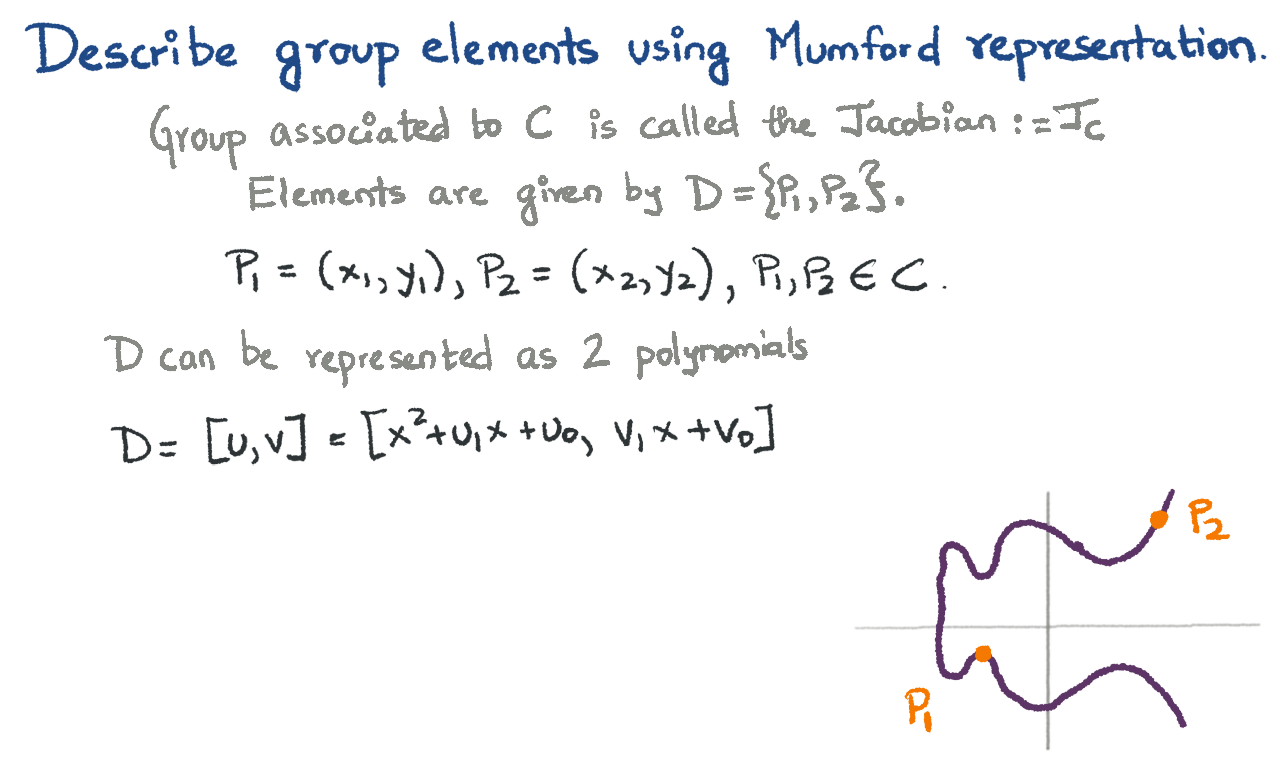 Describe group elements using Mumford representation.
Group associated to C is called the Jacobian := J_C
Elements are given by D = {P₁, P₂}.
P₁ = (x₁, y₁), P₂ = (x₂, y₂), P₁, P₂ ∈ C.
D can be represented as 2 polynomials
D = [u, v] = [x² + u₁x + u₀, v₁x + v₀]
P₂
P₁